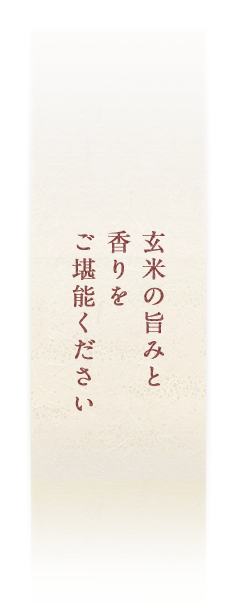 玄米の旨みと
香りを
ご堪能ください